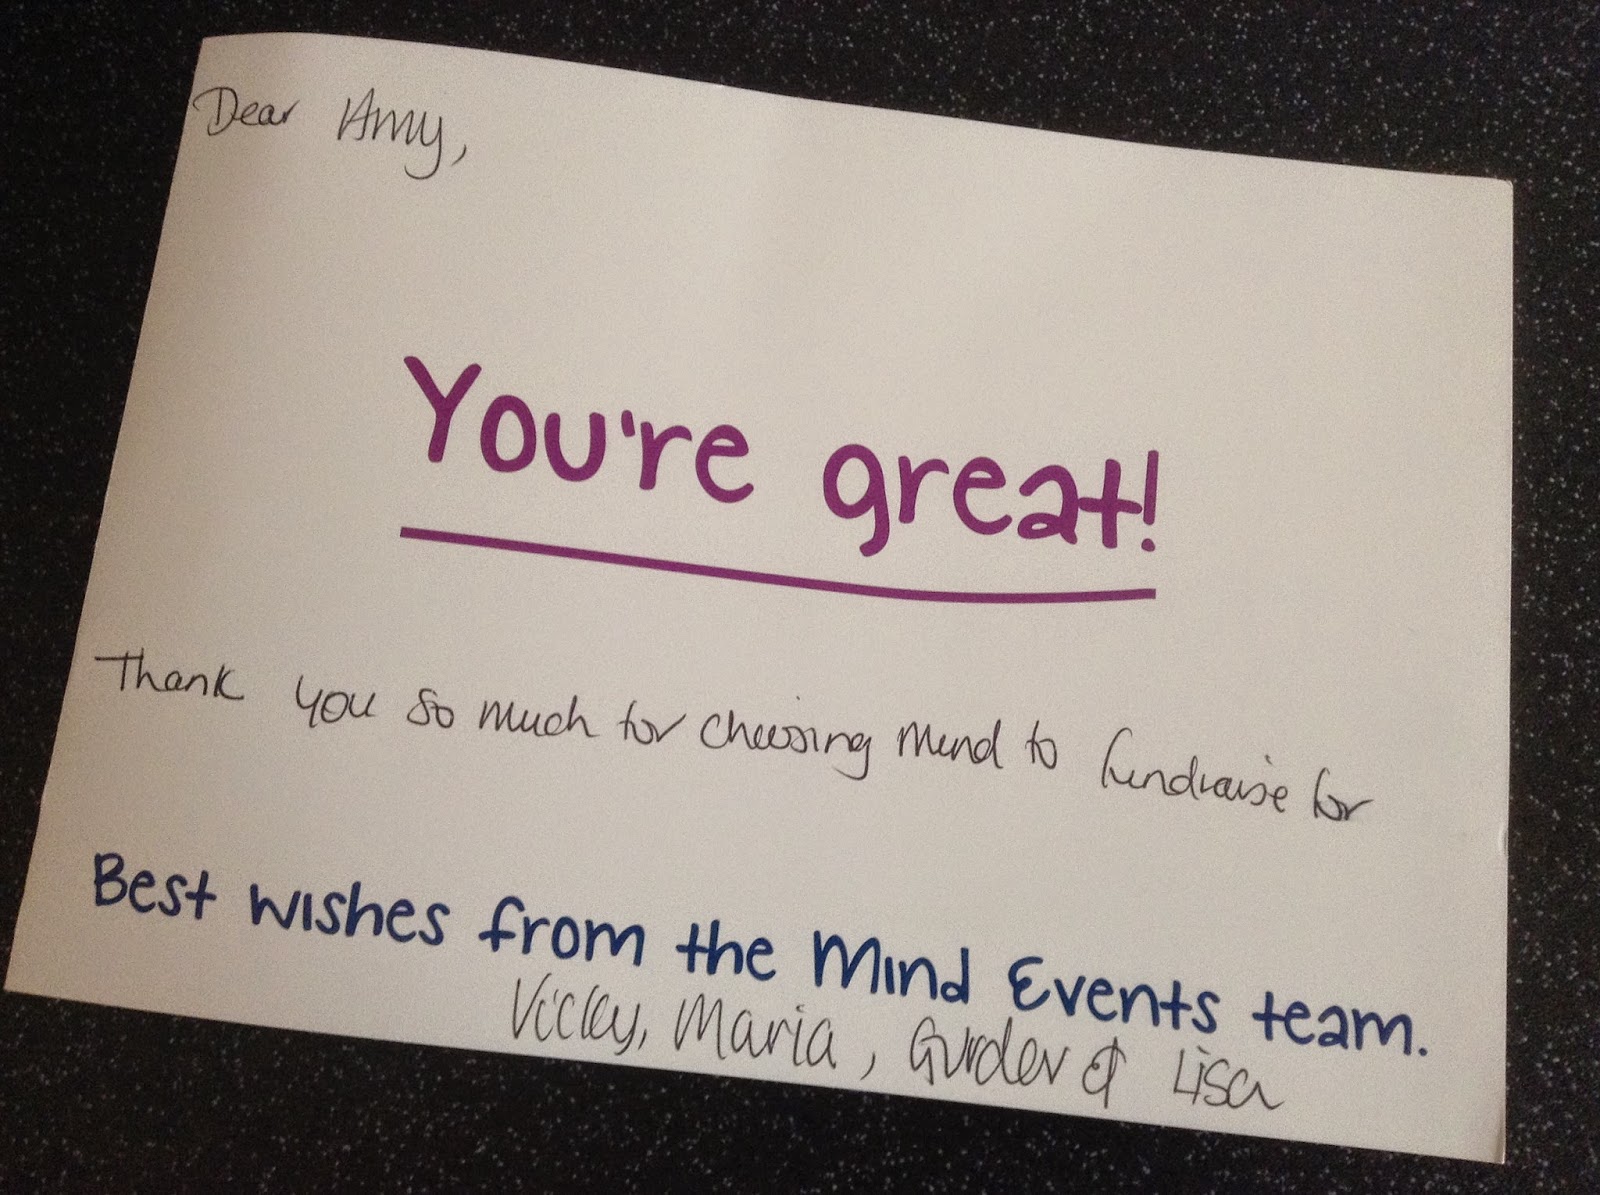 Dear Amy,
You're great!
Thank you so much for choosing Mind to fundraise for
Best wishes from the Mind Events team.
Vicky, Maria, Gurdev & Lisa